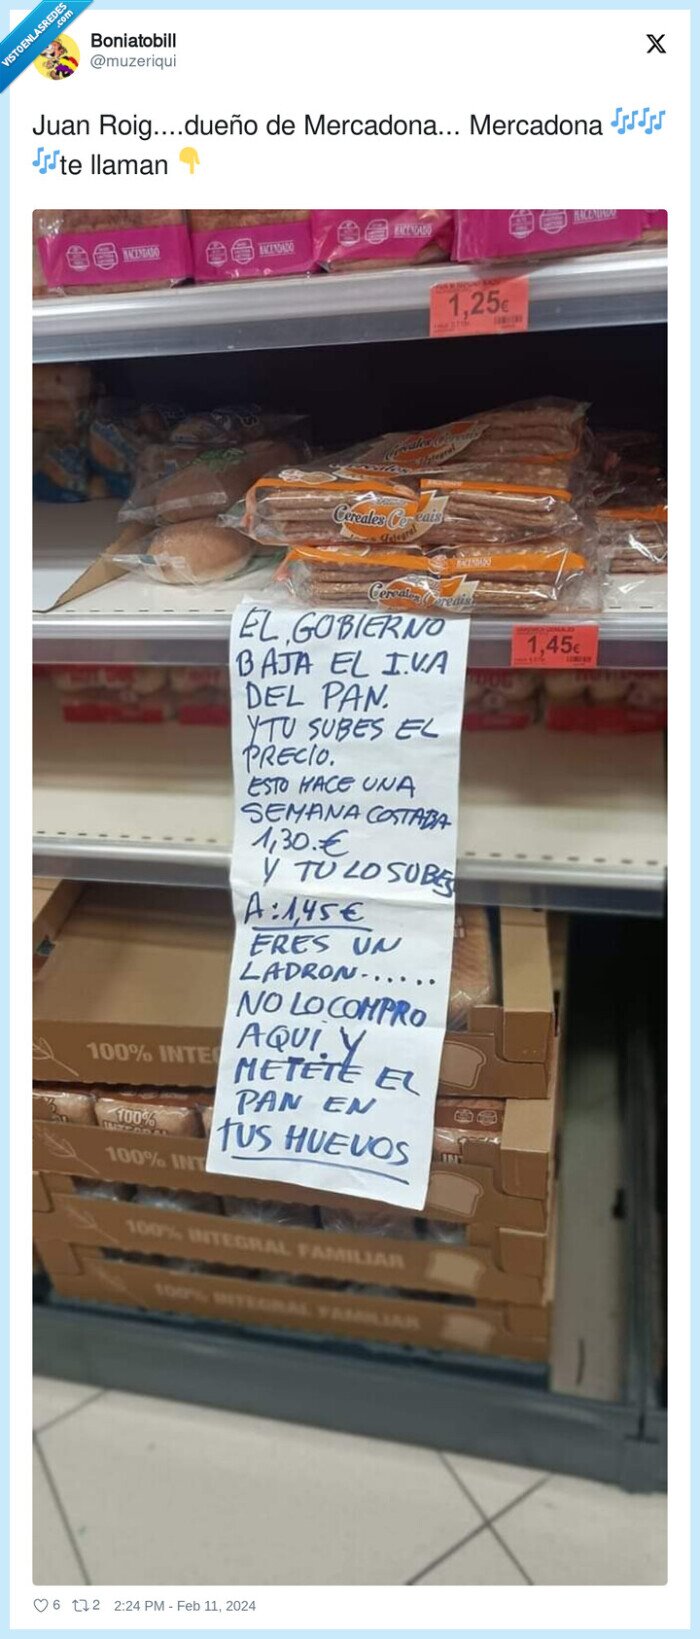 VISTOENLASREDES
.com
Boniatobill
@muzeriqui
Juan Roig....dueño de Mercadona... Mercadona 🎶🎶
🎶te llaman 👇
HACENDADO
HACENDADO
HACENDADO
HACENDADO
1,25€
Cereales Cereais
Cereales Cereais
Integral
HACENDADO
Cereales Cereais
1,45€
EL GOBIERNO
BAJA EL I.V.A
DEL PAN.
Y TU SUBES EL
PRECIO.
ESTO HACE UNA
SEMANA COSTABA
1,30.€
Y TU LO SUBES
A:1,45€
ERES UN
LADRON......
NO LO COMPRO
AQUI Y
METETE EL
PAN EN
TUS HUEVOS
100% INTE
100%
INTEGRAL
100% INT
100% INTEGRAL FAMILIAR
100% INTEGRAL FAMILIAR
6 2 2:24 PM - Feb 11, 2024